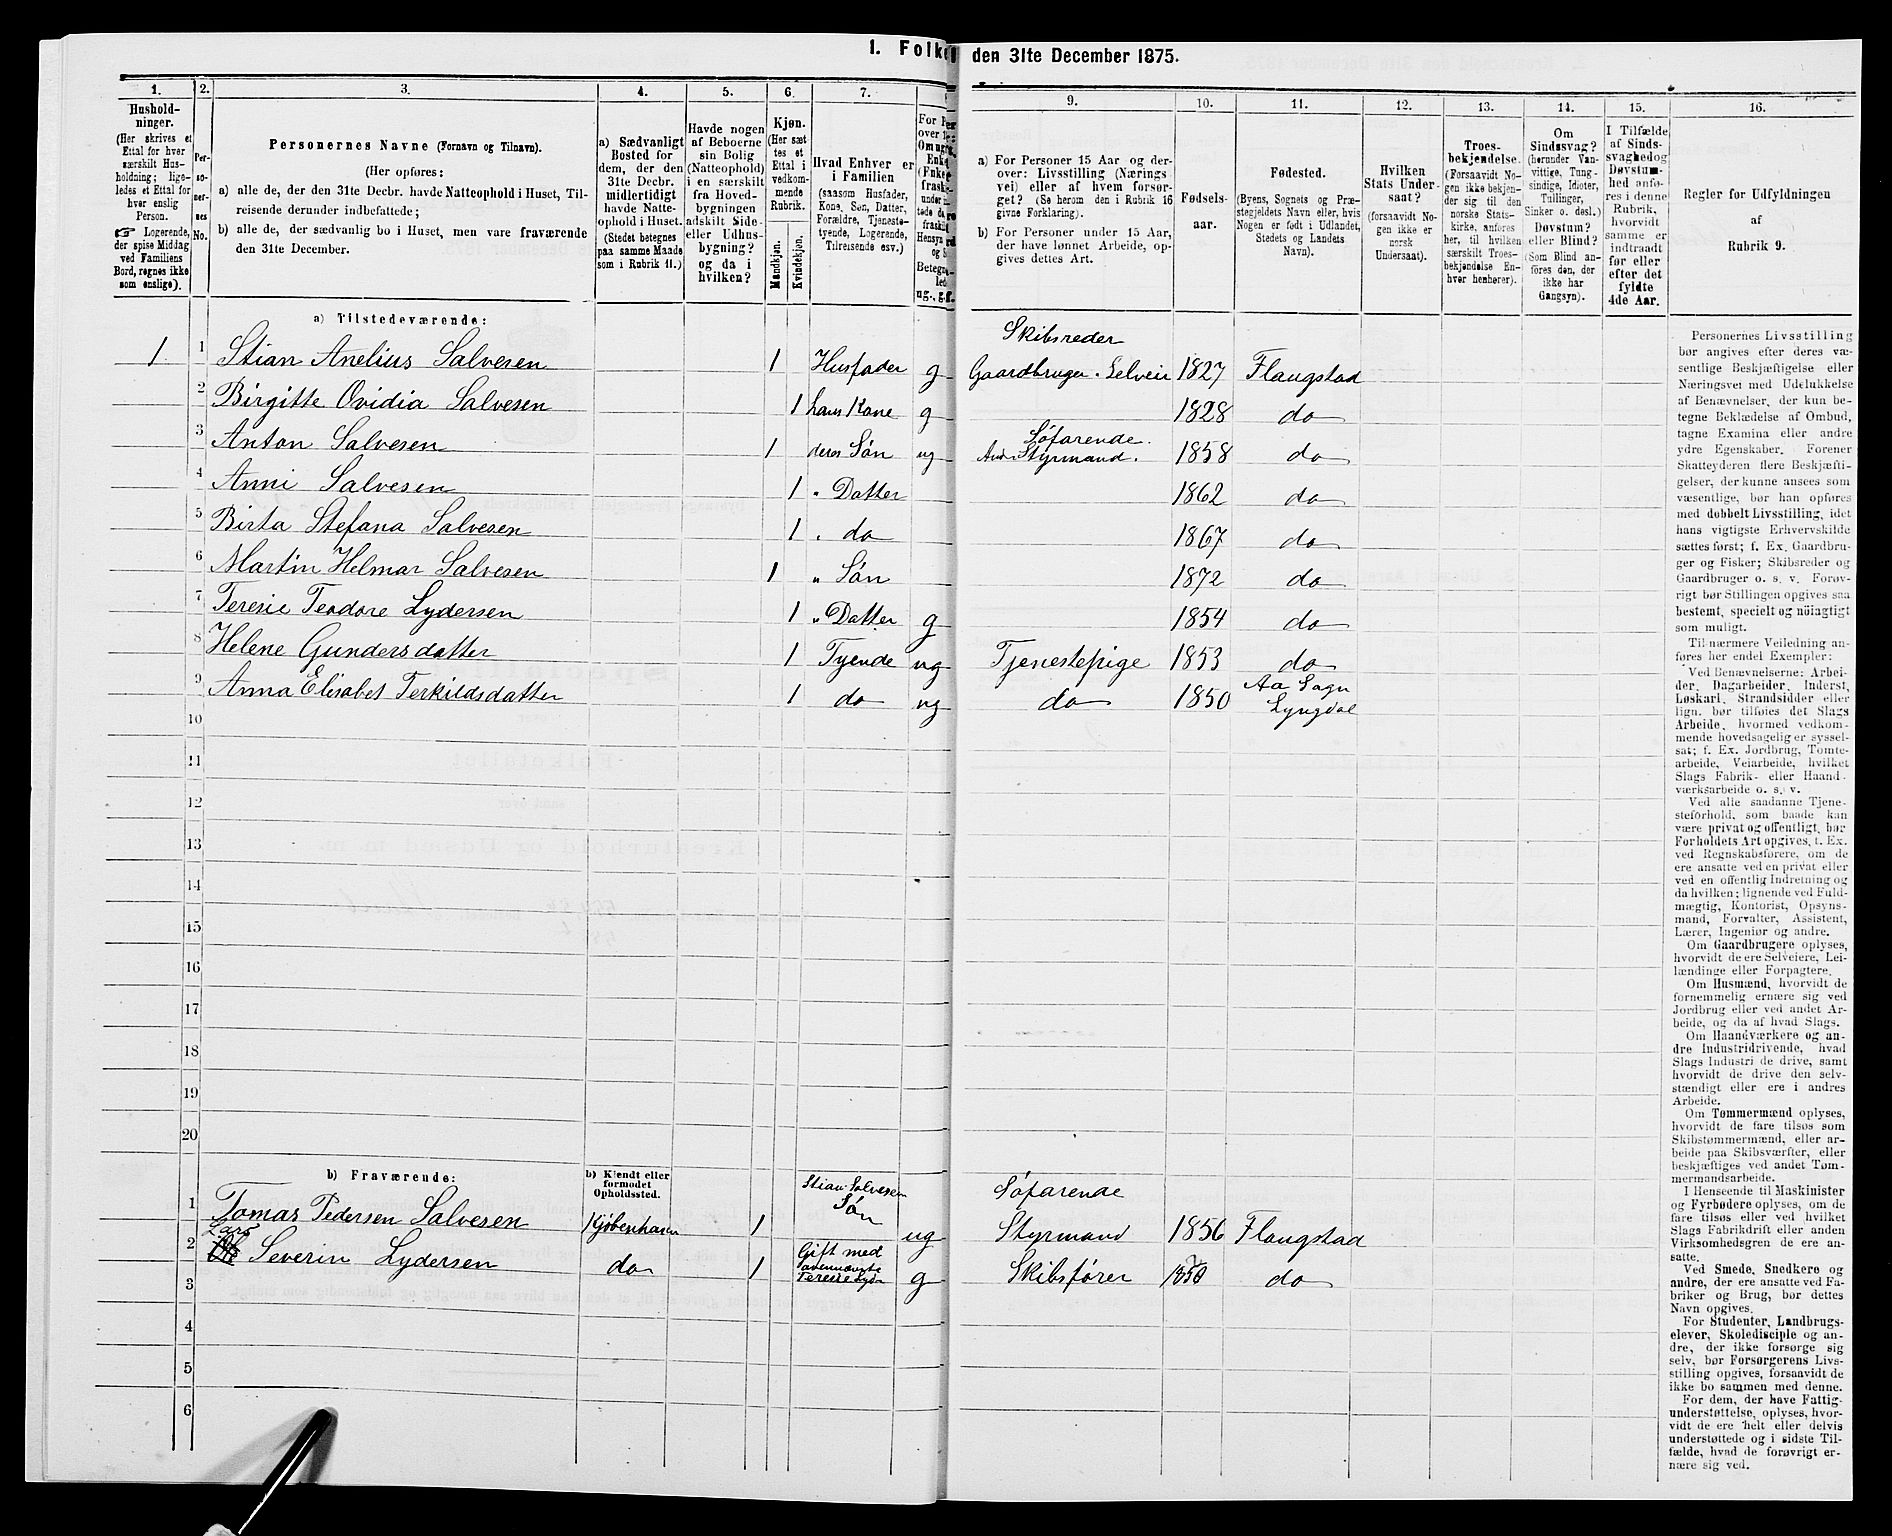 1. Folke
den 31te December 1875.
1.
2.
3.
4.
5.
6.
7.
9.
10.
11.
12.
13.
14.
15.
16.
Hushold-
ninger.
(Her skrives et
Ettal for hver
særskilt Hus-
holdning; lige-
ledes et Ettal for
hver enslig
Person.
☞ Logerende,
der spise Middag
ved Familiens
Bord, regnes ikke
som enslige).
Per-
so-
ner-
nes
No.
Personernes Navne (Fornavn og Tilnavn).
(Her opføres:
a) alle de, der den 31te Decbr. havde Natteophold i Huset, Til-
reisende derunder indbefattede;
b) alle de, der sædvanlig bo i Huset, men vare fraværende
den 31te December.
a) Sædvanligt
Bosted for
dem, der den
31te Decbr.
midlertidigt
havde Natte-
ophold i Huset.
(Stedet betegnes
paa samme Maade
som i Rubrik 11.)
Havde nogen
af Beboerne
sin Bolig
(Natteophold)
i en særskilt
fra Hoved-
bygningen
adskilt Side-
eller Udhus-
bygning?
og da i
hvilken?
Kjøn.
(Her sæt-
tes et
Ettal i
vedkom-
mende
Rubrik.
Mandkjøn.
Kvindekjøn.
Hvad Enhver er
i Familien
(saasom Husfader,
Kone, Søn, Datter,
Forældre, Tjeneste-
tyende, Logerende,
Tilreisende osv.)
a) For Personer 15 Aar og der-
over: Livsstilling (Nærings-
vei) eller af hvem forsør-
get? (Se herom den i Rubrik 16
givne Forklaring).
b) For Personer under 15 Aar,
der have lønnet Arbeide, op-
gives dettes Art.
Fødsels-
aar.
Fødested.
(Byens, Sognets og Præ-
stegjeldets Navn eller, hvis
Nogen er født i Udlandet,
Stedets og Landets
Navn).
Hvilken
Stats Under-
saat?
(forsaavidt No-
gen ikke er
norsk
Undersaat).
Troes-
bekjendelse.
(Forsaavidt No-
gen ikke bekjen-
der sig til den
norske Stats-
kirke, anføres
her, til hvilken
særskilt Troes-
bekjendelse En-
hver henhører).
Om
Sindssvag?
(herunder Van-
vittige, Tung-
sindige, Idioter,
Tullinger,
Sinker o. desl.)
Døvstum?
eller Blind?
(Som Blind an-
føres den, der
ikke har
Gangsyn).
I Tilfælde
af Sinds-
svaghed og
Døvstum-
hed anfø-
res i denne
Rubrik,
hvorvidt
samme er
indtraadt
før eller
efter det
fyldte
4de Aar.
Regler for Udfyldningen
af
Rubrik 9.
a) Tilstedeværende:
Skibsreder
1 1 Stian Anelius Salvesen 1 Husfader g Gaardbruger. Selveier 1827 Flaugstad
2 Birgitte Ovidia Salvesen 1 hans Kone g 1828 do
Søfarende.
3 Anton Salvesen 1 deres Søn ug Styrmand. 1858 do
4 Anni Salvesen 1 " Datter 1862 do
5 Birta Stefana Salvesen 1 " do 1867 do
6 Martin Helmar Salvesen 1 " Søn 1872 do
7 Teresie Teodore Lydersen 1 " Datter g 1854 do
8 Helene Gundersdatter 1 Tyende ug Tjenestepige 1853 do
9 Anna Elisabet Terkildsdatter 1 do ug do 1850 Aa Sogn
Lyngdal
10
11
12
13
14
15
16
17
18
19
20
b) Fraværende:
b) Kjendt eller
formodet
Opholdssted.
Stian Salvesen Søfarende
1 Tomas Pedersen Salvesen Kjøbenhavn 1 Søn ug Styrmand 1856 Flaugstad
Lars
2 Severin Lydersen do 1 Gift med
Teresie Lyder g Skibsfører 1850 do
3
4
5
6
Personernes Livsstilling
bør angives efter deres væ-
sentlige Beskjæftigelse eller
Næringsvei med Udelukkelse
af Benævnelser, der kun be-
tegne Beklædelse af Ombud,
tagne Examina eller andre
ydre Egenskaber. Forener
Skatteyderen flere Beskjæfti-
gelser, der kunne ansees som
væsentlige, bør han opføres
med dobbelt Livsstilling, idet
hans vigtigste Erhvervskilde
sættes først; f. Ex. Gaardbru-
ger og Fisker; Skibsreder og
Gaardbruger o. s. v. Forøv-
rigt bør Stillingen opgives saa
bestemt, specielt og nøiagtigt
som muligt.
Til nærmere Veiledning an-
føres her endel Exempler:
Ved Benævnelserne: Arbei-
der, Dagarbeider, Inderst,
Løskarl, Strandsidder eller
lign. bør tilføies det Slags
Arbeide, hvormed vedkom-
mende hovedsagelig er syssel-
sat; f. Ex. Jordbrug, Tomte-
arbeide, Veiarbeide, hvilket
Slags Fabrik- eller Haand-
værksarbeide o. s. v.
Ved alle saadanne Tjene-
steforhold, som baade kan
være privat og offentligt, bør
Forholdets Art opgives, t. Ex.
ved Regnskabsførere, om de
ere ansatte ved en privat eller
ved en offentlig Indretning og
da hvilken; lignende ved Fuld-
mægtig, Kontorist, Opsyns-
mand, Forvalter, Assistent,
Lærer, Ingeniør og andre.
Om Gaardbrugere oplyses,
hvorvidt de ere Selveiere, Lei-
lændinge eller Forpagtere.
Om Husmænd, hvorvidt de
fornemmelig ernære sig ved
Jordbrug eller ved andet Ar-
beide, og da af hvad Slags.
Om Haandværkere og an-
dre Industridrivende, hvad
Slags Industri de drive, samt
hvorvidt de drive den selv-
stændigt eller ere i andres
Arbeide.
Om Tømmermænd oplyses,
hvorvidt de fare tilsøs som
Skibstømmermænd, eller ar-
beide paa Skibsværfter, eller
beskjæftiges ved andet Tøm-
mermandsarbeide.
I Henseende til Maskinister
og Fyrbødere oplyses, om de
fare tilsøs eller ved hvilket
Slags Fabrikdrift eller anden
Virksomhedsgren de ere an-
satte.
Ved Smede, Snedkere og
andre, der ere ansatte ved Fa-
briker og Brug, bør dettes
Navn opgives.
For Studenter, Landbrugs-
elever, Skoledisciple og an-
dre, der ikke forsørge sig
selv, bør Forsørgerens Livs-
stilling opgives, forsaavidt de
ikke bo sammen med denne.
For dem, der have Fattig-
understøttelse, oplyses, hvor-
vidt de ere helt eller delvis
understøttede og i sidste Til-
fælde, hvad de forøvrigt er-
nære sig ved.